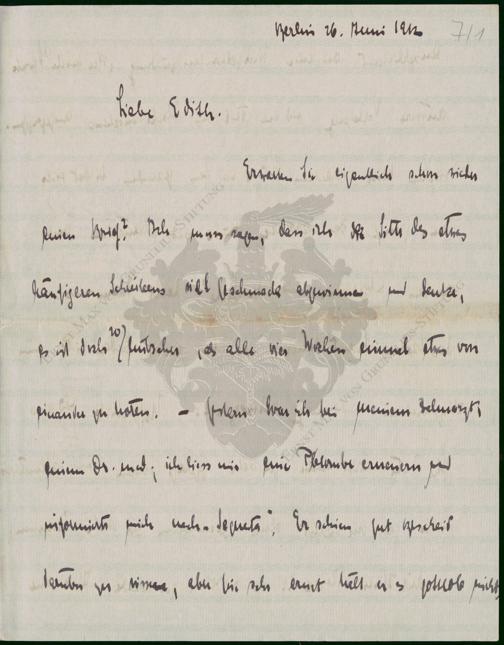 Berlin 26. Juni 1912
7/1
Liebe Edith.
Erwarten Sie eigentlich schon wieder
einen Brief? Ich muss sagen, dass ich die Sitte des etwas
häufigeren Schreibens viel Geschmack abgewinne und denke,
es ist doch 20) hübscher, als alle vier Wochen einmal etwas von
einander zu hören. – Gestern war ich bei meinem Zahnarzt,
einem Dr. med; ich liess mir eine Plombe erneuern und
informierte mich nach
Er schien gut Bescheid
darüber zu wissen, aber für sehr ernst hält er es gottlob nicht,